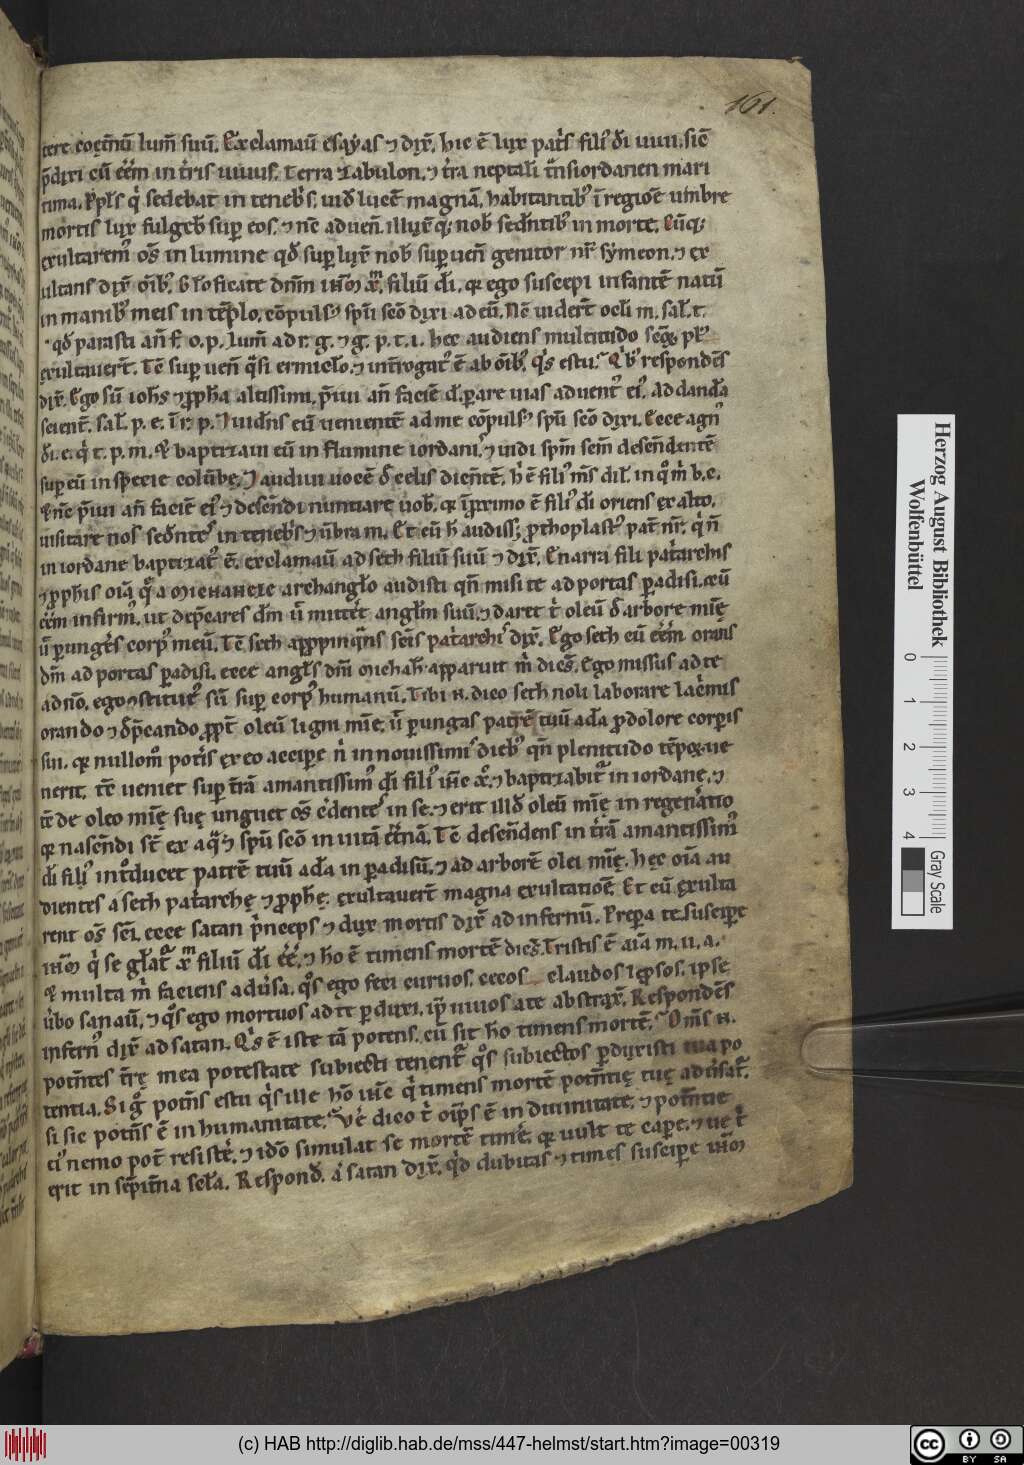 161.
tere coęt̄nū lum̄ suū. Exclamaū esayas ⁊ dix̄. hic ē lux pat̉s fili᷒ d̄i uiui. sic̄
p̄dixi cū ēēm in t̄ris uiuus. Terra zabulon. ⁊ t̄ra neptali t̄nsiordanen mari
tima. p̄pl̄s q̉ sedebat in teneb̄s. uid̄ lucē magnā. habitantib᷒ ī regioē umbre
mortis lux fulgeb̄ sup̱ eos. ⁊ nc̄ aduen̄. illuxēq; nob̄ sed̄ntib᷒ in morte. Cūq;
exultarem᷒ os̄ in lumine qd̄ sup̱ luxē nob̄ sup̱uen̄ genitor nr̄ symeon. ⁊ ex
ultans dix̄ oīb᷒. Gl̄oficate dn̄m ih̄m xp̄m filiū d̄i. qr ego suscepi infantē natū
in manib᷒ meis in tēplo. cōpuls᷒ sp̄u sc̄o dixi ad eū. Nc̄ uidert̄ ocl̄i m. sal̄. t.
qd̄ parasti an̄ f. o. p. lum̄ ad r. g. ⁊ g. p. t. i. hec audiens multitudo
exultauert̄. Tc̄ sup̱uen̄ q̄si ermicl̄o. ⁊ int̄rogat᷒ ē ab oīb᷒. q̉s estu. Qb᷒ respondēs
dix̄. Ego sū ioh̄s ⁊ p̱ph̄a altissimi. p̄iui an̄ faciē d̄. p̱are uias aduent᷒ ei᷒. Ad dand̄a
scient̄. sal̄. p. e. ī r. p. ⁊ uid̄ns eū uenientē ad me cōpuls᷒ sp̄u sc̄o dixi. Ecce agn᷒
d̄i. e. q̉ t. p. m. Et baptizaui eū in flumine iordani᷒. ⁊ uidi sp̄m sc̄m desēndentē
sup̱ eū in specie colūbę. ⁊ audiui uocē d̄ cęlis dicen̄tē. h̉ ē fili᷒ m̄s dil̄. in qͦ m̉ b. c.
Et nc̄ p̄iui an̄ faciē ei᷒ ⁊ descēndi nuntiare uob̄. qr ī p̱ximo ē fili᷒ d̄i oriens ex alto.
uisitare nos sed̄nte᷒ in teneb̄s ⁊ ūbra m. Et cū h̄ audiss; prothoplast᷒ pat̄ nr̄. q̉ n̄
in iordane baptizat᷒ ē. exclamaū ad seth filiū suū ⁊ dix̄. Enarra fili pat̉archis
⁊ p̱ph̄is oīa q̄ a michahele archangl̄o audisti qn̄ misi te ad portas p̱adisi. cū
ēēm infirm᷒. ut dep̄cares d̄m ū mittēt angl̄m suū. ⁊ daret t̉ oleū d̄ arbore mię
ū p̱ungēs corp᷒ meū. Tc̄ seth app̱pinq̄ns sc̄is pat̉archi᷒ dix̄. Ego seth cū ēēm orans
dm̄ ad portas p̱adisi. ecce angl̄s dm̄ michah̄ apparuit m̉ dicēs. Ego missus ad te
a dn̄o. ego ꝯstitut᷒ sū sup̱ corp᷒ humanū. Tibi n. dico seth noli laborare lac̉mis
orando ⁊ dp̄cando p̱pt̄ oleū ligni mīe. ū p̱ungas patrē tuū ada p̱ dolore corp̱is
sui. qr nullom᷒ pot̉is ex eo accip̱e n̉ in nouissimi᷒ dieb᷒ qn̄ plenitudo tēpoꝝ ue
nerit. tc̄ ueniet sup̱ t̄rā amantissim᷒ d̄i fili᷒ ih̄c xp̄c ⁊ baptizabit᷑ in iordanę. ⁊
tc̄ de oleo mię suę unguet os̄ c̉dentē in se. ⁊ erit illd̄ oleū mię in regenāratio
qr nascēndi st̄ ex aq̄ ⁊ sp̄u sc̄o in uitā ęt̄nā. Tc̄ descēndens in t̄rā amantissim᷒
d̄i fili᷒ int̉ducet patrē tuū adā in p̱adisū. ⁊ ad arborē olei mię. hęc oīa au
dientes a seth pat̉archę ⁊ p̱ph̄ę. exultauert̄ magna exultatioē. Et cū exulta
rent os̄ sc̄i. ecce satan p̉nceps ⁊ dux mortis dix̄ ad infernū. Prep̱a te suscip̱e
ih̄m q̉ se gl̄at᷑ xp̄m filiū d̄i ēē. ⁊ ho ē timens mortē dicēs. Tristis ē aīa m. u. a.
Et multa m̉ faciens adūsa. qͦs ego feci curuos. cecos claudos leprosos. ipse
ūbo sanaū. ⁊ qͦs ego mortuos ad te p̱duxi. ip̄ uiuos a te abstrax̄. Respondēs
infern᷒ dix̄ ad satan. Qͥs ē iste tā potens. cū sit ho timens mortē. Om̄s n.
potn̄tes t̄rę mea potestate subiecti tenent᷑ qͦs subiectos p̱duxisti tua po
tentia. Si gͦ potn̄s estu q̉s ille hō ih̄c q̉ timens mortē potn̄tię tuę adūsat᷑.
si sic potn̄s ē in humanitate. Vē dico t̉ oīp̄s ē in diuinitate. ⁊ potn̄tie
ei᷒ nemo pot̄ resistē. ⁊ idō simulat se mortē timē. qr uult te cap̱e. ⁊ ue t̉
erit in sēpit̄na scl̄a. Respond̄. ā satan dix̄. qͥd dubitas ⁊ times suscip̱e ih̄m
Herzog August Bibliothek
Wolfenbüttel
0 1 2 3 4
Gray Scale
(c) HAB http://diglib.hab.de/mss/447-helmst/start.htm?image=00319
cc BY SA